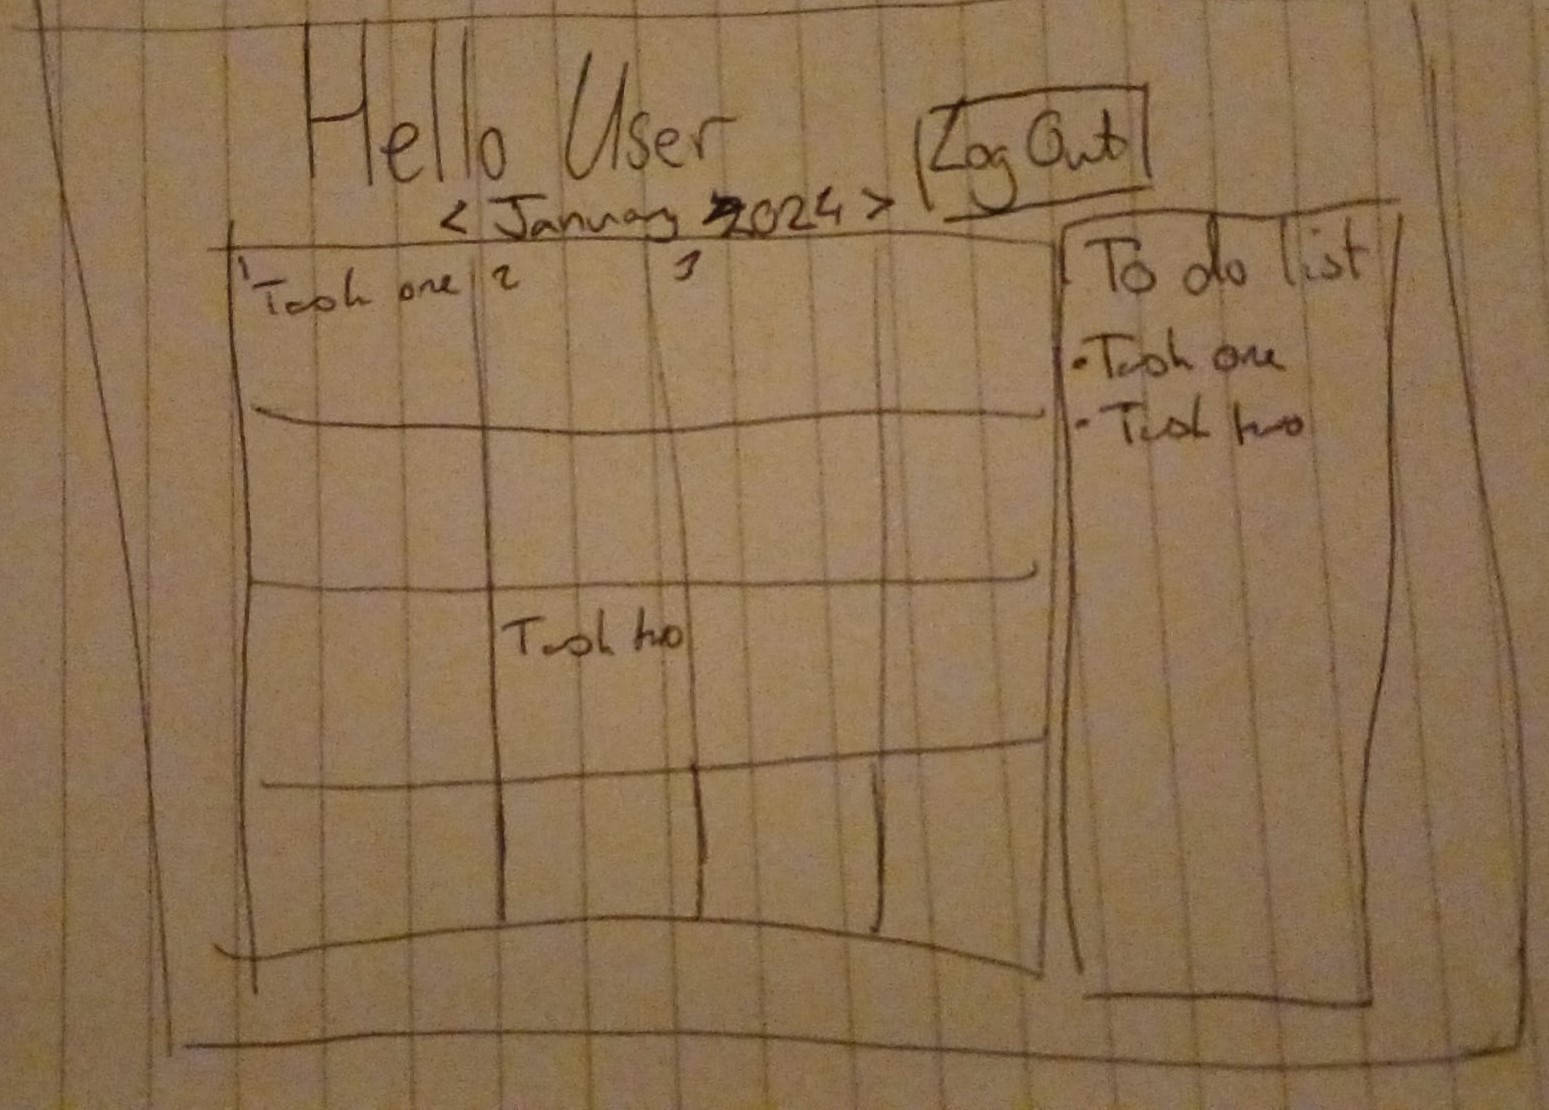 Hello User
Log Out
< January 2024 >
1 Task one
2
3
Task two
To do list
• Task one
• Task two